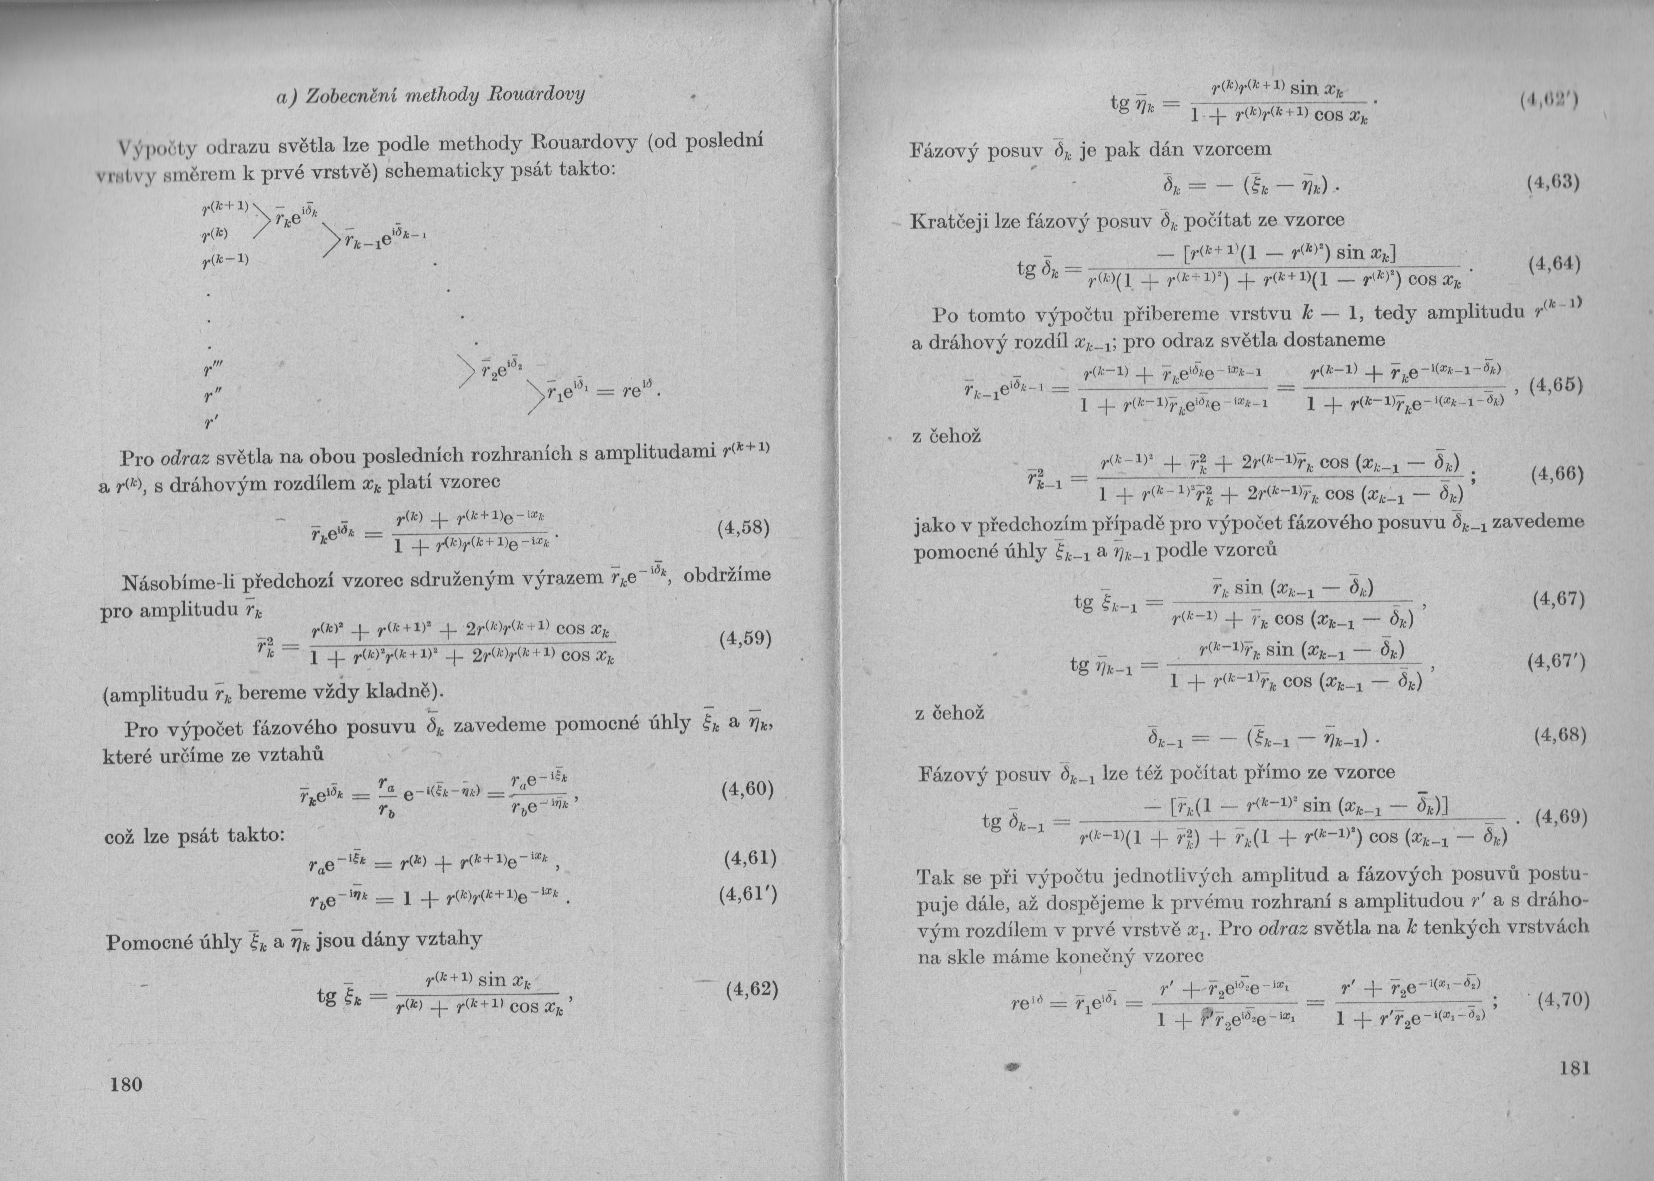 a) Zobecnění methody Rouardovy
Výpočty odrazu světla lze podle methody Rouardovy (od poslední
vrstvy směrem k prvé vrstvě) schematicky psát takto:
r^(k+1)
r^(k) > r̄_k e^{iδ̄_k}
r^(k−1) > r̄_{k−1} e^{iδ̄_{k−1}}
.
.
.
r''' > r̄_2 e^{iδ̄_2}
r'' > r̄_1 e^{iδ̄_1} = re^{iδ} .
r'
Pro odraz světla na obou posledních rozhraních s amplitudami r^(k+1)
a r^(k), s dráhovým rozdílem x_k platí vzorec
r̄_k e^{iδ̄_k} = (r^(k) + r^(k+1) e^{−ix_k}) / (1 + r^(k) r^(k+1) e^{−ix_k}) . (4,58)
Násobíme-li předchozí vzorec sdruženým výrazem r̄_k e^{−iδ̄_k}, obdržíme
pro amplitudu r̄_k
r̄_k^2 = (r^(k)² + r^(k+1)² + 2r^(k) r^(k+1) cos x_k) / (1 + r^(k)² r^(k+1)² + 2r^(k) r^(k+1) cos x_k) (4,59)
(amplitudu r̄_k bereme vždy kladně).
Pro výpočet fázového posuvu δ̄_k zavedeme pomocné úhly ξ̄_k a η̄_k,
které určíme ze vztahů
r̄_k e^{iδ̄_k} = (r_a / r_b) e^{−i(ξ̄_k−η̄_k)} = (r_a e^{−iξ̄_k}) / (r_b e^{−iη̄_k}) , (4,60)
což lze psát takto:
r_a e^{−iξ̄_k} = r^(k) + r^(k+1) e^{−ix_k} , (4,61)
r_b e^{−iη̄_k} = 1 + r^(k) r^(k+1) e^{−ix_k} . (4,61')
Pomocné úhly ξ̄_k a η̄_k jsou dány vztahy
tg ξ̄_k = (r^(k+1) sin x_k) / (r^(k) + r^(k+1) cos x_k) , (4,62)
180
tg η̄_k = (r^(k) r^(k+1) sin x_k) / (1 + r^(k) r^(k+1) cos x_k) . (4,62')
Fázový posuv δ̄_k je pak dán vzorcem
δ̄_k = − (ξ̄_k − η̄_k) . (4,63)
Kratčeji lze fázový posuv δ̄_k počítat ze vzorce
tg δ̄_k = (− [r^(k+1)(1 − r^(k)²) sin x_k]) / (r^(k)(1 + r^(k+1)²) + r^(k+1)(1 − r^(k)²) cos x_k) . (4,64)
Po tomto výpočtu přibereme vrstvu k − 1, tedy amplitudu r^(k−1)
a dráhový rozdíl x_{k−1}; pro odraz světla dostaneme
r̄_{k−1} e^{iδ̄_{k−1}} = (r^(k−1) + r̄_k e^{iδ̄_k} e^{−ix_{k−1}}) / (1 + r^(k−1) r̄_k e^{iδ̄_k} e^{−ix_{k−1}}) = (r^(k−1) + r̄_k e^{−i(x_{k−1}−δ̄_k)}) / (1 + r^(k−1) r̄_k e^{−i(x_{k−1}−δ̄_k)}) , (4,65)
z čehož
r̄_{k−1}^2 = (r^(k−1)² + r̄_k^2 + 2r^(k−1) r̄_k cos (x_{k−1} − δ̄_k)) / (1 + r^(k−1)² r̄_k^2 + 2r^(k−1) r̄_k cos (x_{k−1} − δ̄_k)) ; (4,66)
jako v předchozím případě pro výpočet fázového posuvu δ̄_{k−1} zavedeme
pomocné úhly ξ̄_{k−1} a η̄_{k−1} podle vzorců
tg ξ̄_{k−1} = (r̄_k sin (x_{k−1} − δ̄_k)) / (r^(k−1) + r̄_k cos (x_{k−1} − δ̄_k)) , (4,67)
tg η̄_{k−1} = (r^(k−1) r̄_k sin (x_{k−1} − δ̄_k)) / (1 + r^(k−1) r̄_k cos (x_{k−1} − δ̄_k)) , (4,67')
z čehož
δ̄_{k−1} = − (ξ̄_{k−1} − η̄_{k−1}) . (4,68)
Fázový posuv δ̄_{k−1} lze též počítat přímo ze vzorce
tg δ̄_{k−1} = (− [r̄_k(1 − r^(k−1)² sin (x_{k−1} − δ̄_k)]) / (r^(k−1)(1 + r̄_k^2) + r̄_k(1 + r^(k−1)²) cos (x_{k−1} − δ̄_k)) . (4,69)
Tak se při výpočtu jednotlivých amplitud a fázových posuvů postu-
puje dále, až dospějeme k prvému rozhraní s amplitudou r' a s dráho-
vým rozdílem v prvé vrstvě x_1. Pro odraz světla na k tenkých vrstvách
na skle máme konečný vzorec
re^{iδ} = r̄_1 e^{iδ̄_1} = (r' + r̄_2 e^{iδ̄_2} e^{−ix_1}) / (1 + r' r̄_2 e^{iδ̄_2} e^{−ix_1}) = (r' + r̄_2 e^{−i(x_1−δ̄_2)}) / (1 + r' r̄_2 e^{−i(x_1−δ̄_2)}) ; (4,70)
181